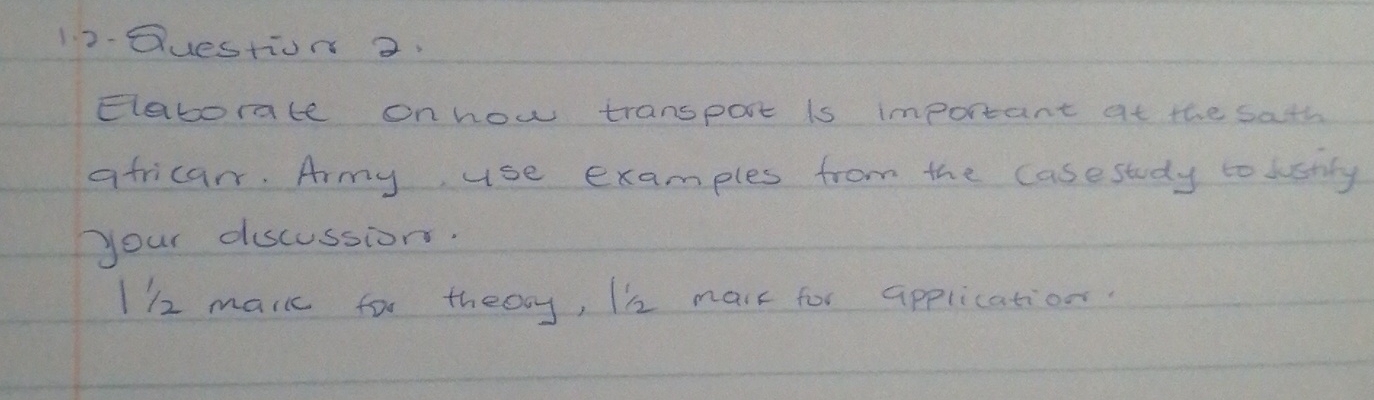 1.2- Question 2.
Elaborate on how transport is important at the South
african. Army, use examples from the case study to Justify
your discussion.
1 1/2 mark for theory, 1 1/2 mark for application.